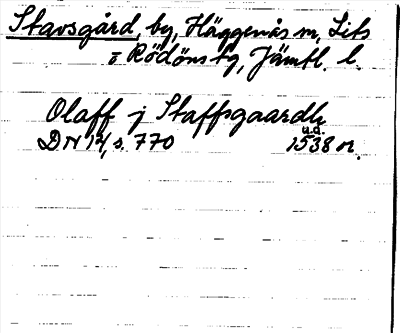 Stavsgård, by, Häggenås sn, Lits
o Rödöns tg, Jämtl. l.
Olaff j Staffsgaardh
u.d.
DN 14, s. 770 1538 or.